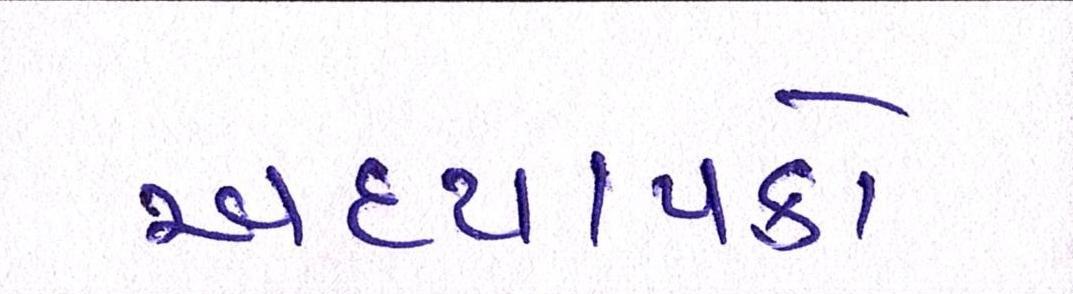 અદયાપકો